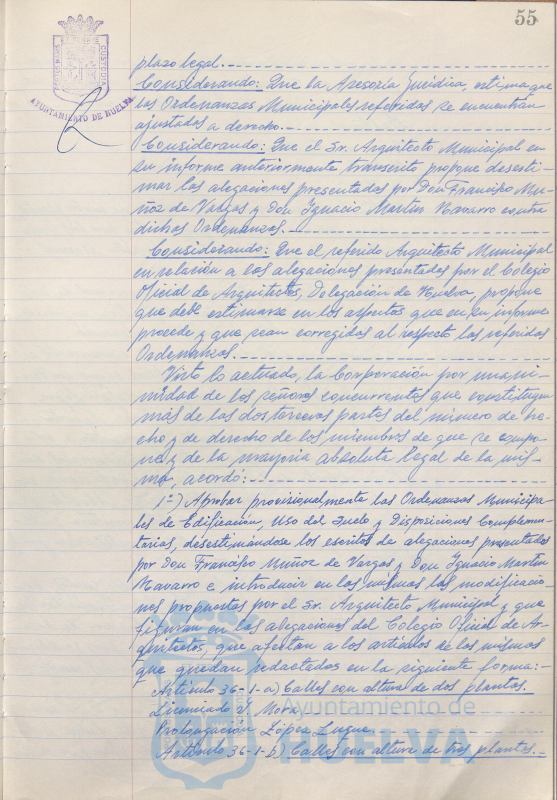 55
AYUNTAMIENTO DE HUELVA
plazo legal.
Considerando: Que la Asesoría Jurídica, estima que
las Ordenanzas Municipales referidas se encuentran
ajustadas a derecho.
Considerando: Que el Sr. Arquitecto Municipal en
su informe anteriormente transcrito propone desesti-
mar las alegaciones presentadas por Don Francisco Mu-
ñoz de Vargas y Don Ignacio Martin Navarro contra
dichas Ordenanzas.
Considerando: Que el referido Arquitecto Municipal
en relación a las alegaciones presentadas por el Colegio
Oficial de Arquitectos, Delegación de Huelva, propone
que debe estimarse en los aspectos que en su informe
procede y que sean corregidas al respecto las referidas
Ordenanzas.
Visto lo actuado, la Corporación por unani-
midad de los señores concurrentes que constituyen
más de las dos terceras partes del número de he-
cho y de derecho de los miembros de que se compo-
ne y de la mayoría absoluta legal de la mis-
ma, acordó:
1º) Aprobar provisionalmente las Ordenanzas Municipa-
les de Edificación, Uso del Suelo y Disposiciones Complemen-
tarias, desestimándose los escritos de alegaciones presentados
por Don Francisco Muñoz de Vargas y Don Ignacio Martin
Navarro e introducir en las mismas las modificacio-
nes propuestas por el Sr. Arquitecto Municipal y que
figuran en las alegaciones del Colegio Oficial de Ar-
quitectos, que afectan a los artículos de las mismas
que quedan redactados en la siguiente forma:-
Artículo 36-1-a) Calles con altura de dos plantas.
Licenciado J. Mora
Prolongación López Luque.
Artículo 36-1-b) Calles con altura de tres plantas.
Ayuntamiento de
HUELVA